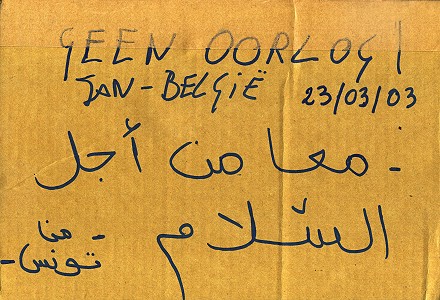 GEEN OORLOG!
JAN - BELGIË 23/03/03
- معا من أجل
السّلام
- منا
تونس -